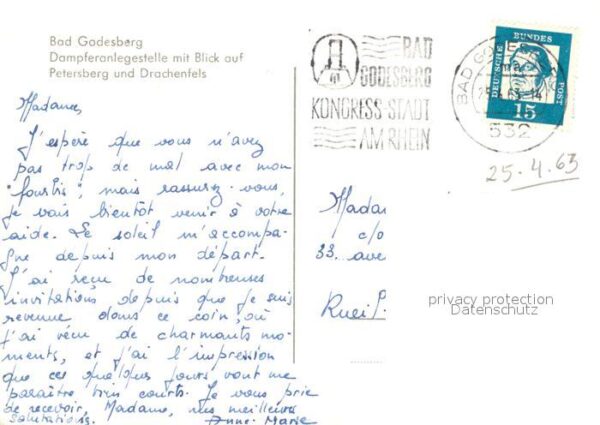 Bad Godesberg
Dampferanlegestelle mit Blick auf
Petersberg und Drachenfels
Madame,
J'espère que vous n'avez
pas trop de mal avec mon
fourbis ; mais rassurez-vous,
je vais bientôt venir à votre
aide. Le soleil m'accompa-
gne depuis mon départ.
J'ai reçu de nombreuses
invitations depuis que je suis
revenue dans ce coin, où
j'ai vécu de charmants mo-
ments, et j'ai l'impression
que ces quelques jours vont me
paraître très courts. Je vous prie
de recevoir, Madame, mes meilleures
salutations. Anne-Marie
BAD
GODESBERG
KONGRESS-STADT
AM RHEIN
BAD GODESB
532
DEUTSCHE BUNDES POST
15
25.4.63
Madam
c/o
33. ave
Rueil
privacy protection
Datenschutz